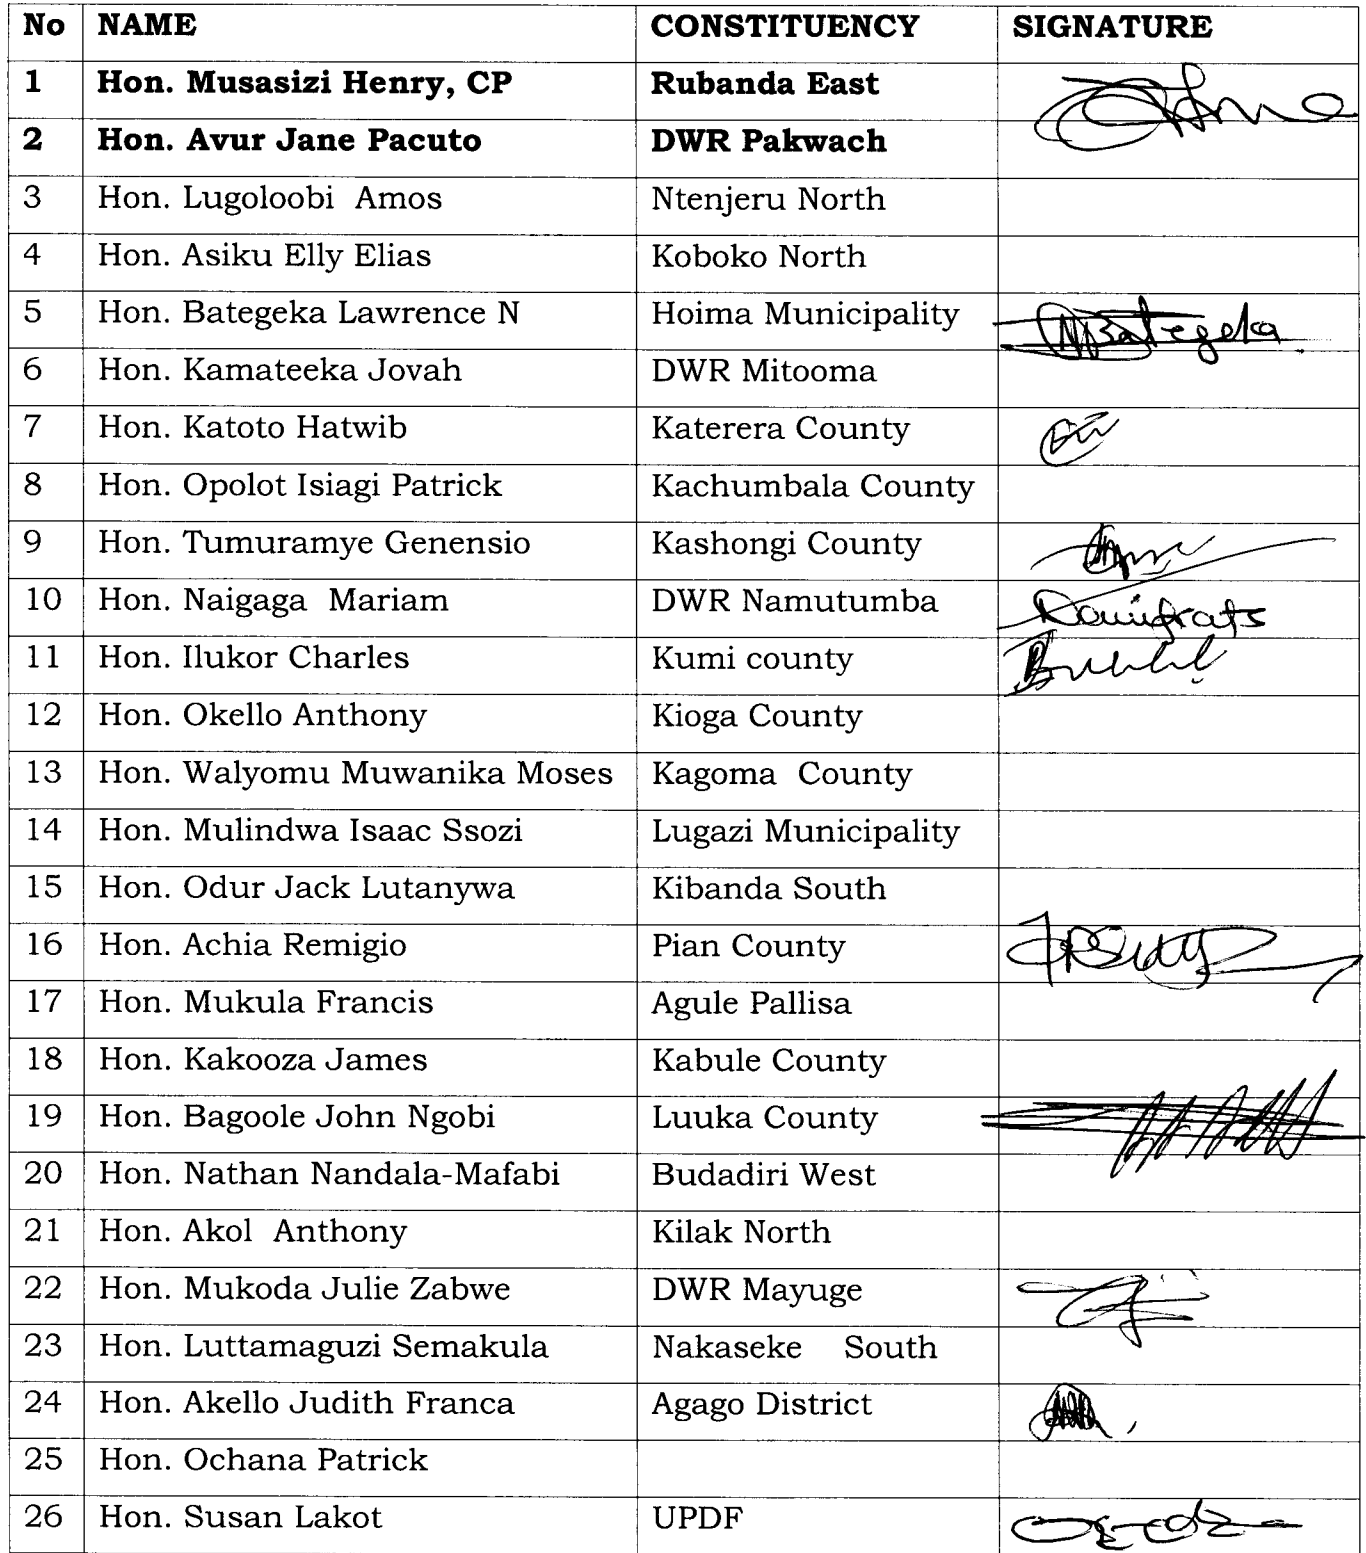 No NAME CONSTITUENCY SIGNATURE
1 Hon. Musasizi Henry, CP Rubanda East
2 Hon. Avur Jane Pacuto DWR Pakwach
3 Hon. Lugoloobi Amos Ntenjeru North
4 Hon. Asiku Elly Elias Koboko North
5 Hon. Bategeka Lawrence N Hoima Municipality NBategeka
6 Hon. Kamateeka Jovah DWR Mitooma
7 Hon. Katoto Hatwib Katerera County
8 Hon. Opolot Isiagi Patrick Kachumbala County
9 Hon. Tumuramye Genensio Kashongi County
10 Hon. Naigaga Mariam DWR Namutumba
11 Hon. Ilukor Charles Kumi county
12 Hon. Okello Anthony Kioga County
13 Hon. Walyomu Muwanika Moses Kagoma County
14 Hon. Mulindwa Isaac Ssozi Lugazi Municipality
15 Hon. Odur Jack Lutanywa Kibanda South
16 Hon. Achia Remigio Pian County
17 Hon. Mukula Francis Agule Pallisa
18 Hon. Kakooza James Kabule County
19 Hon. Bagoole John Ngobi Luuka County
20 Hon. Nathan Nandala-Mafabi Budadiri West
21 Hon. Akol Anthony Kilak North
22 Hon. Mukoda Julie Zabwe DWR Mayuge
23 Hon. Luttamaguzi Semakula Nakaseke South
24 Hon. Akello Judith Franca Agago District
25 Hon. Ochana Patrick
26 Hon. Susan Lakot UPDF